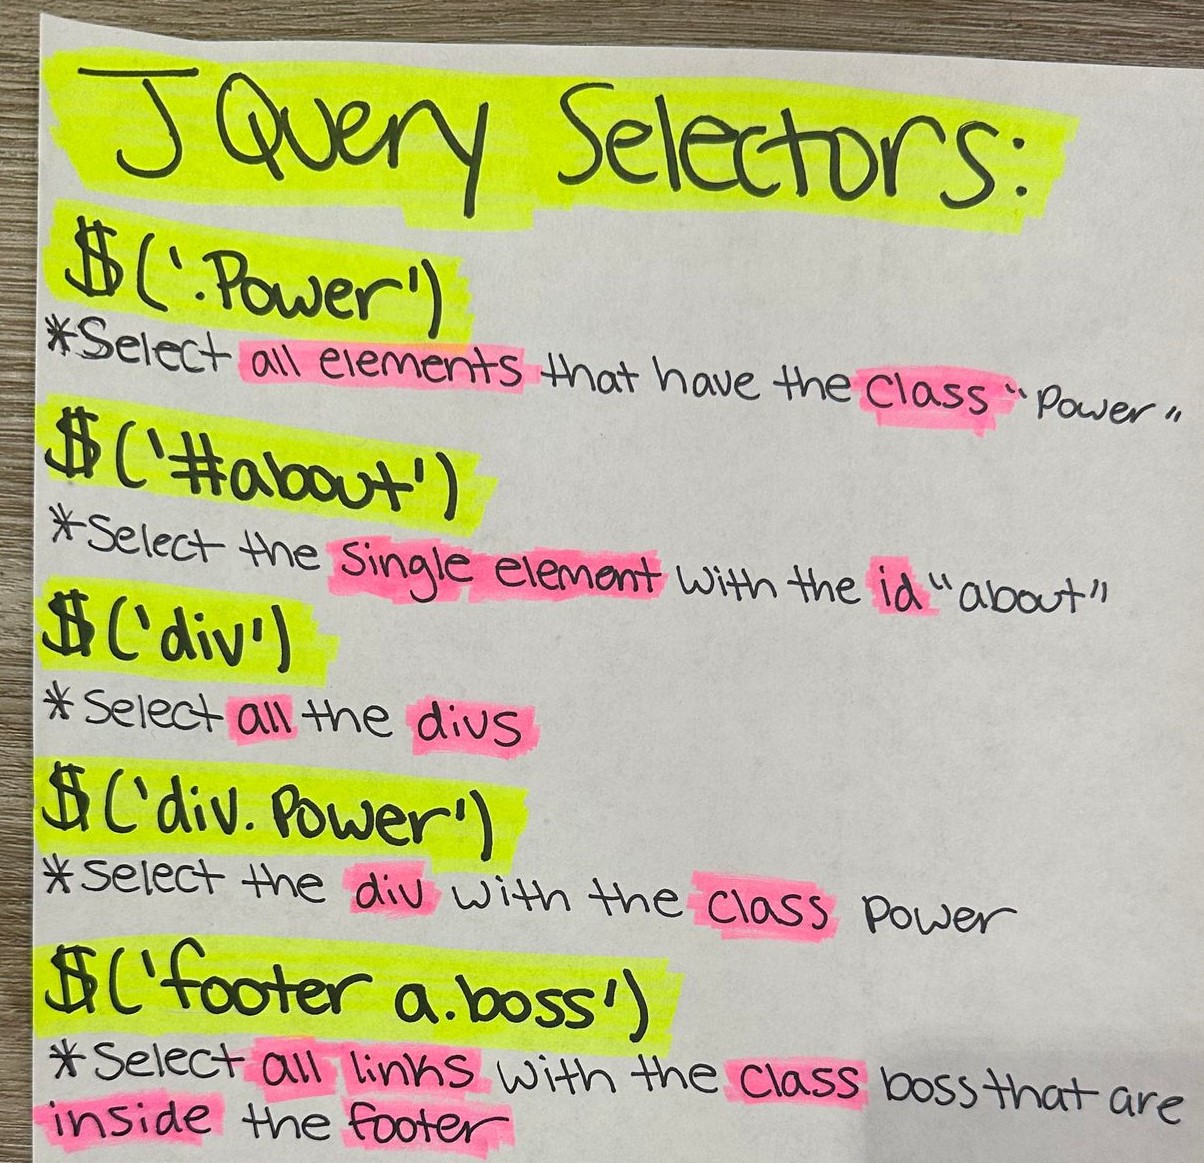 JQuery Selectors:
$('.Power')
*Select all elements that have the class "Power"
$('#about')
*Select the single element with the id "about"
$('div')
*Select all the divs
$('div.Power')
*Select the div with the class Power
$('footer a.boss')
*Select all links with the class boss that are
inside the footer